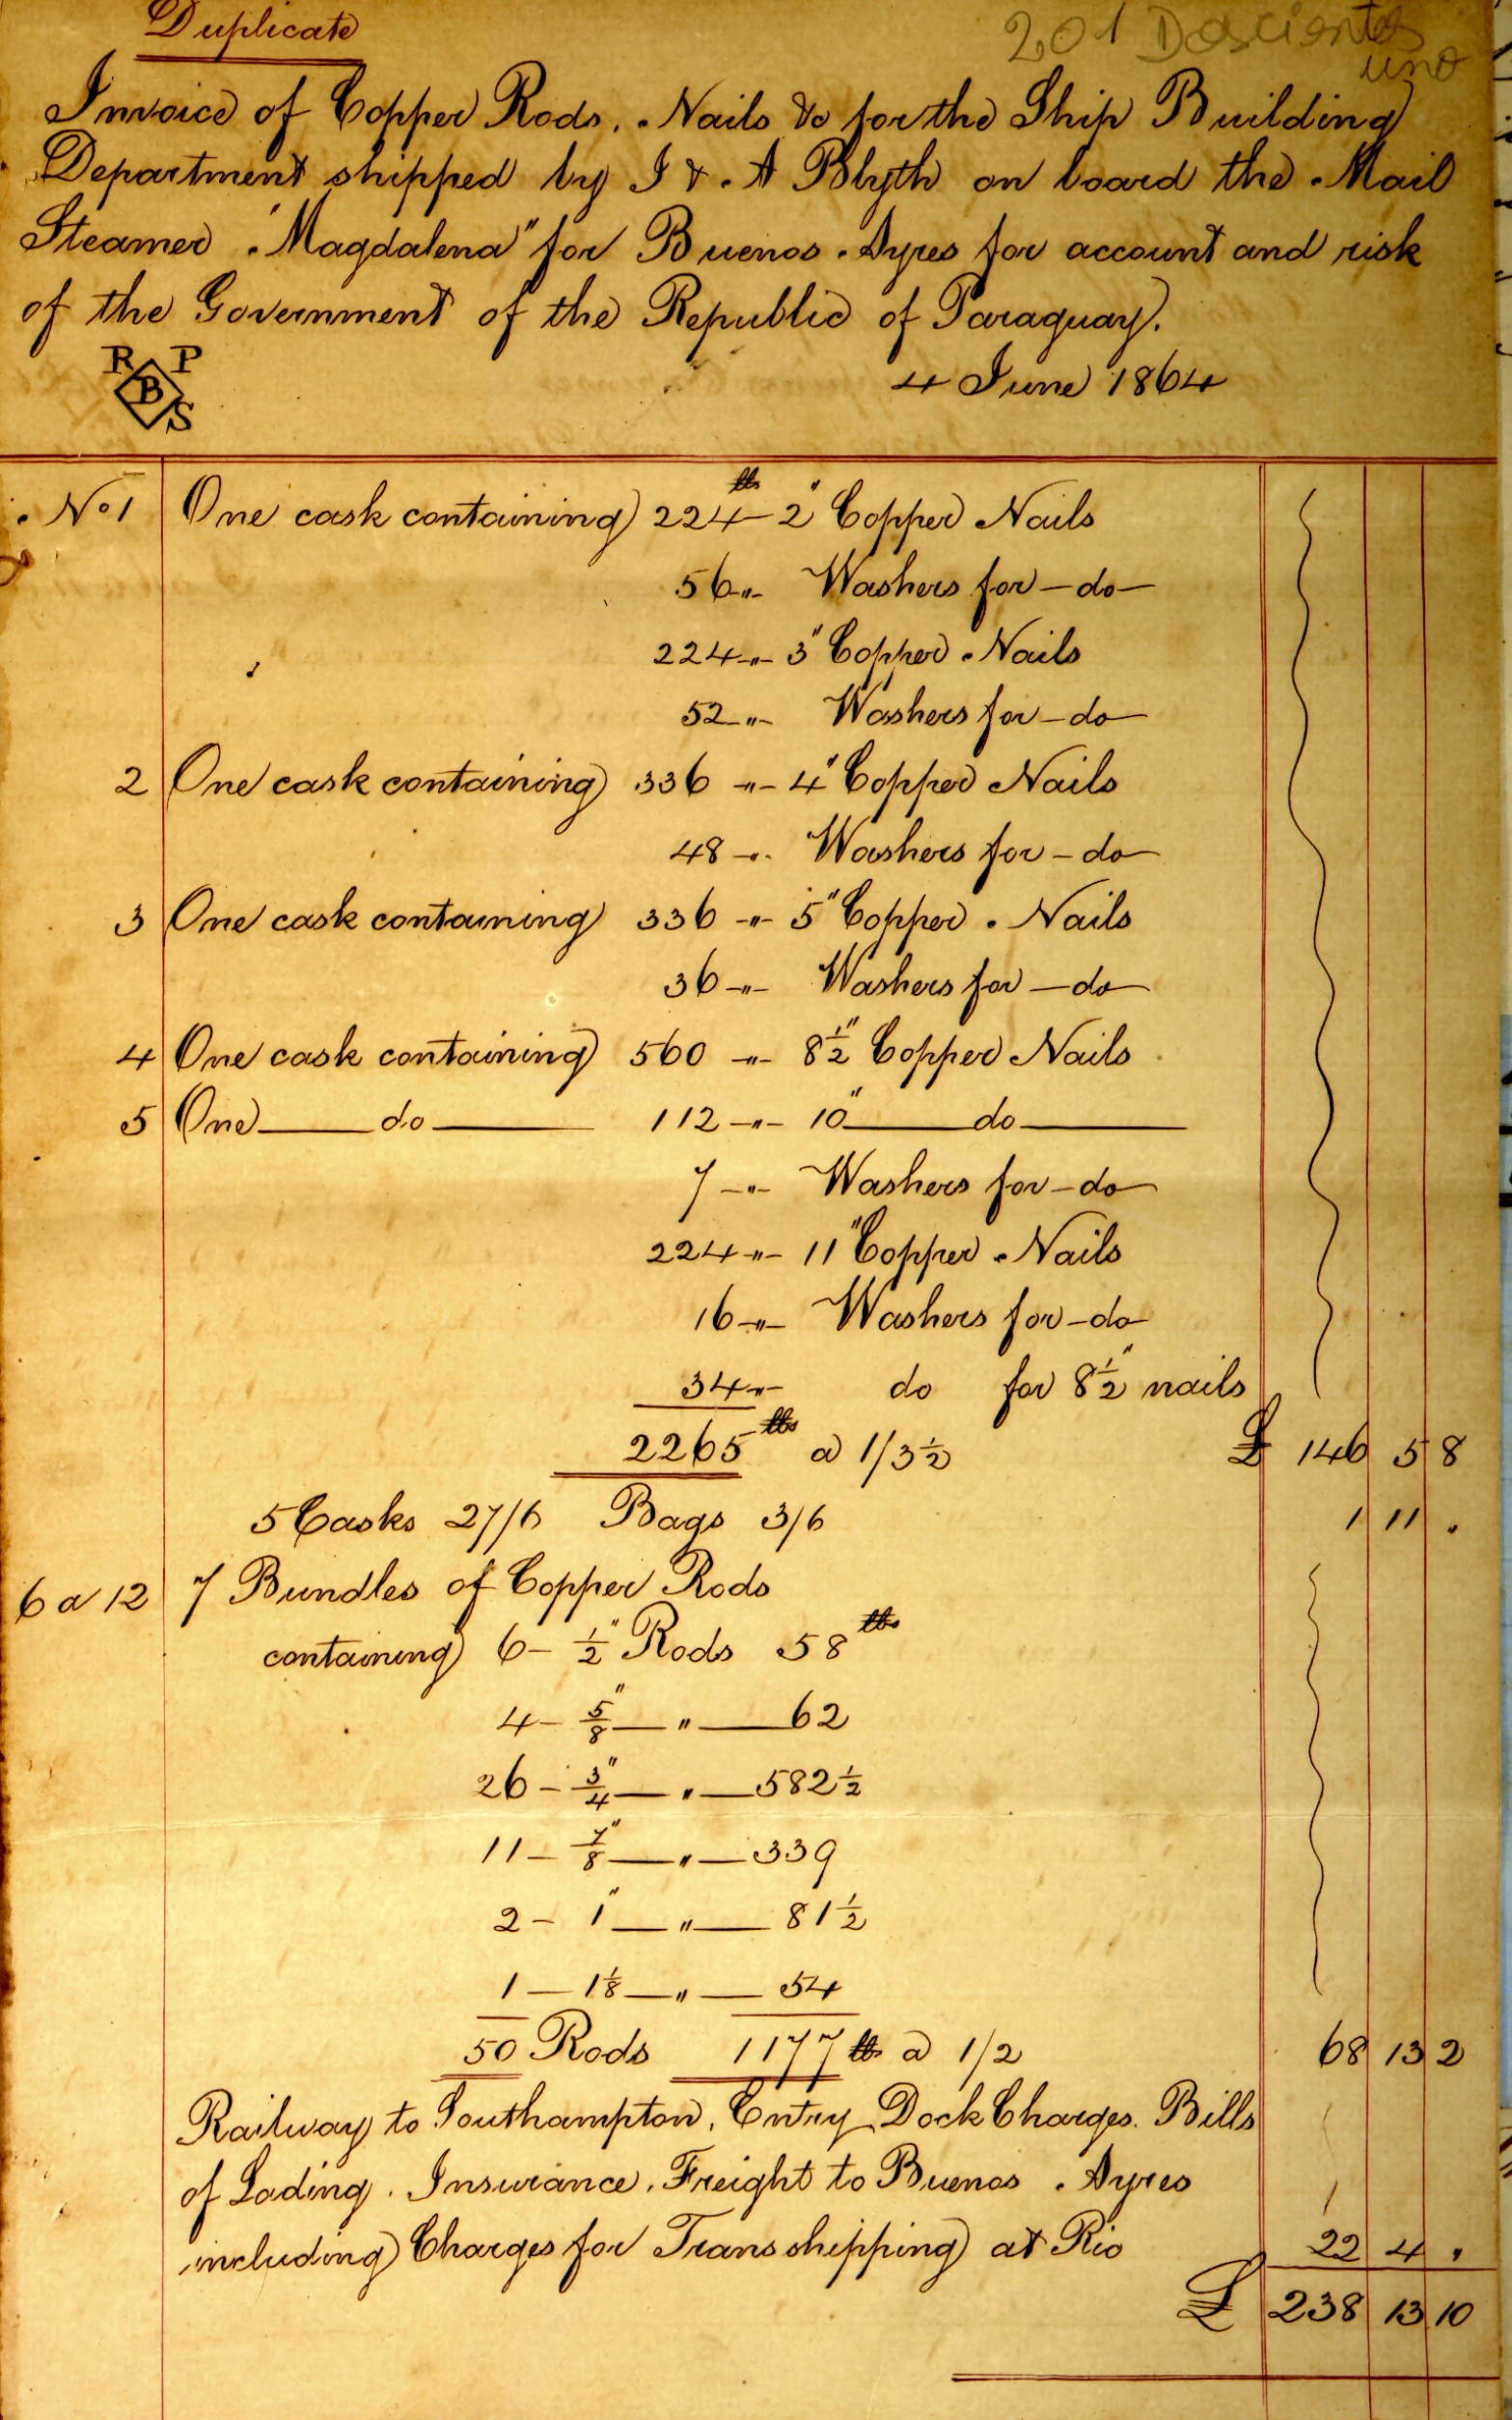 Duplicate
201 Doscientos
uno
Invoice of Copper Rods, Nails &c for the Ship Building
Department shipped by J & A Blyth on board the Mail
Steamer "Magdalena" for Buenos Ayres for account and risk
of the Government of the Republic of Paraguay.
R P
B
S
4 June 1864
No 1 One cask containing 224 lbs 2" Copper Nails
56 " Washers for - do -
224 " 3" Copper Nails
52 " Washers for - do -
2 One cask containing 336 " 4" Copper Nails
48 " Washers for - do -
3 One cask containing 336 " 5" Copper Nails
36 " Washers for - do -
4 One cask containing 560 " 8 1/2" Copper Nails
5 One do 112 " 10" do
7 " Washers for - do -
224 " 11" Copper Nails
16 " Washers for - do -
34 " do for 8 1/2" nails
2265 lbs a 1/3 1/2 £ 146 5 8
5 Casks 27/6 Bags 3/6 1 11 .
6 a 12 7 Bundles of Copper Rods
containing 6 - 1/2" Rods 58 lbs
4 - 5/8" " 62
26 - 3/4" " 582 1/2
11 - 7/8" " 339
2 - 1" " 81 1/2
1 - 1 1/8 " 54
50 Rods 1177 lbs a 1/2 68 13 2
Railway to Southampton, Entry Dock Charges. Bills
of Lading. Insurance. Freight to Buenos Ayres
including Charges for Transshipping at Rio 22 4 .
£ 238 13 10